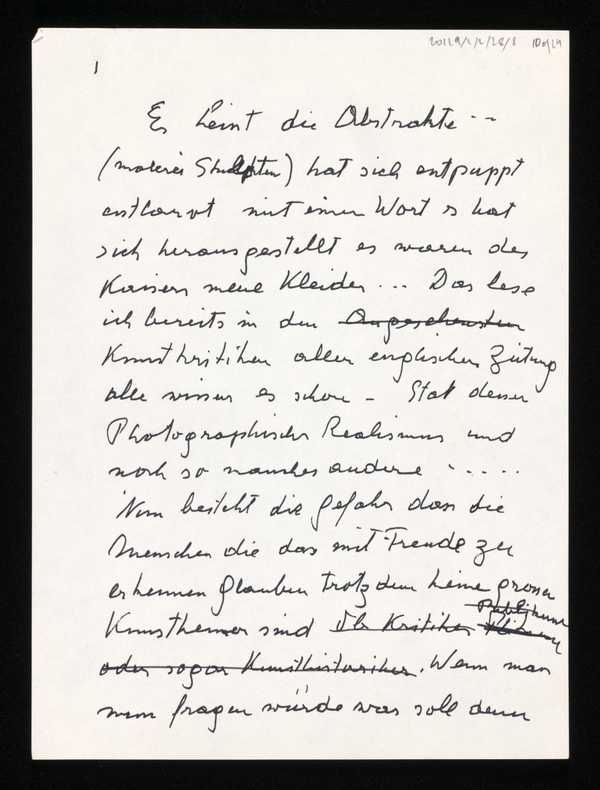 1
Es heint die Abstrakte --
(malerei Skulpten) hat sich entpuppt
entlarvt mit einem Wort es hat
sich herausgestellt es waren des
Kaisers neue Kleider ... Das lese
ich bereits in den Angesehensten
Kunstkritiken aller englischen Zeitung
alle wissen es schon - Stat dessen
Photographischer Realismus und
noch so manches andere .....
Nun besteht die gefahr dass die
Menschen die das mit Freude zu
erkennen glauben trotzdem keine grossen
Publikum
Kunstkenner sind die Kritiker
oder sogar Kunsthistoriker. Wenn man
nun fragen würde was soll denn